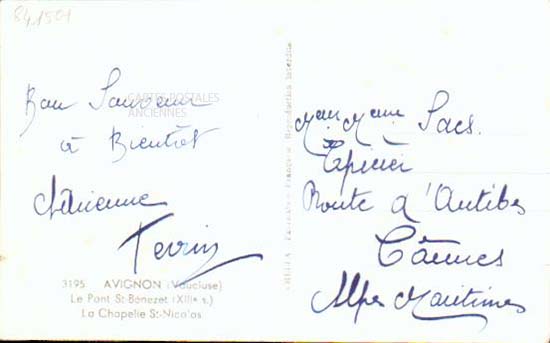 84.1501
Bon Souvenir
à Bientôt
Adrienne
CARTES POSTALES
ANCIENNES
3195 AVIGNON (Vaucluse)
Le Pont St-Bénezet (XIIIe s.)
La Chapelle St-Nicolas
Fabrication Française - Reproduction Interdite
Sacs.
Epicier
Route d'Antibes
Cannes
Alpes Maritimes